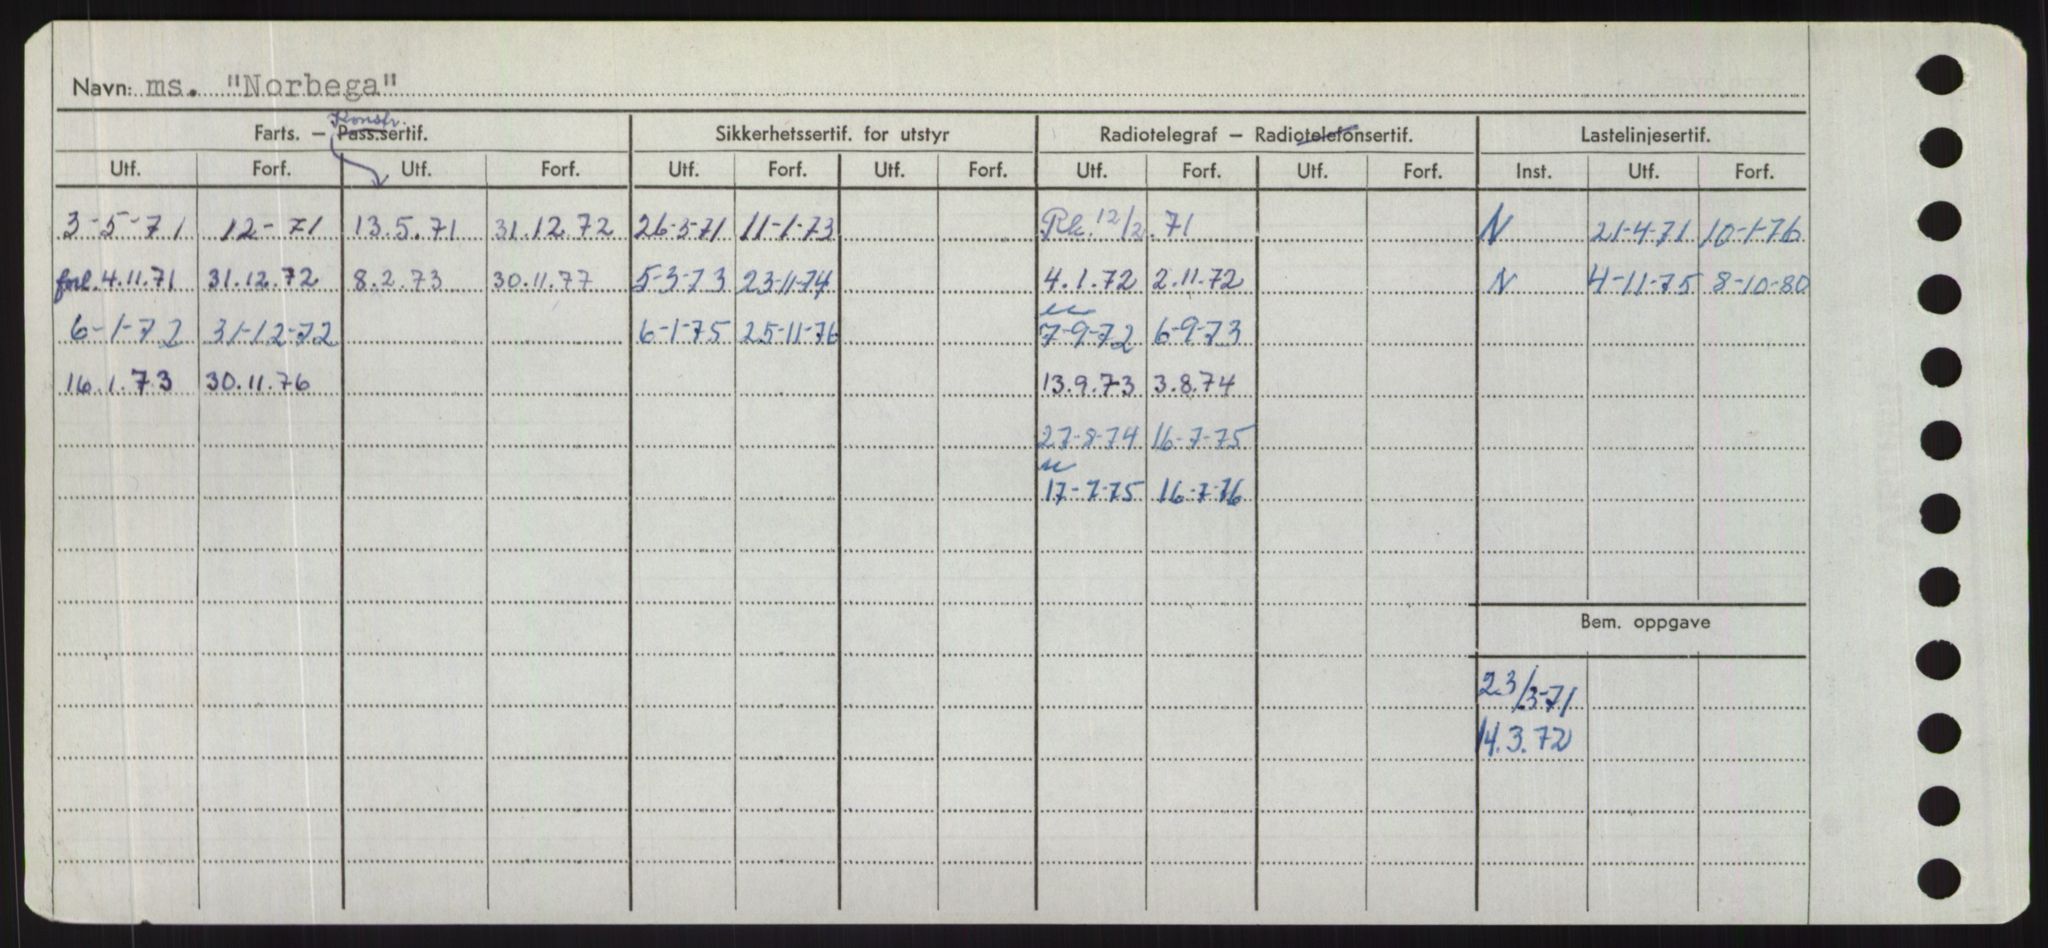 Navn: ms. "Norbega"
Konstr.
Farts. — Pass.sertif. Sikkerhetssertif. for utstyr Radiotelegraf — Radiotelefonsertif. Lastelinjesertif.
Utf. Forf. Utf. Forf. Utf. Forf. Utf. Forf. Utf. Forf. Utf. Forf. Inst. Utf. Forf.
3-5-71 12-71 13.5.71 31.12.72 26-3-71 11-1-73 Rk. 12/2.71 N 21-4-71 10-1-76
forl. 4.11.71 31.12.72 8.2.73 30.11.77 5-3-73 23-11-74 4.1.72 2.11.72 N 4-11-75 8-10-80
6-1-72 31-12-72 6-1-75 25-11-76 7-9-72 6-9-73
16.1.73 30.11.76 13.9.73 3.8.74
27-8-74 16-7-75
17-7-75 16-7-76
Bem. oppgave
23/3-71
14.3.72